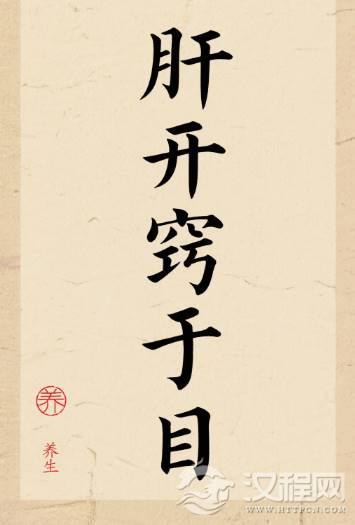 肝开窍于目
养
养生
汉程网
HTTPCN.COM